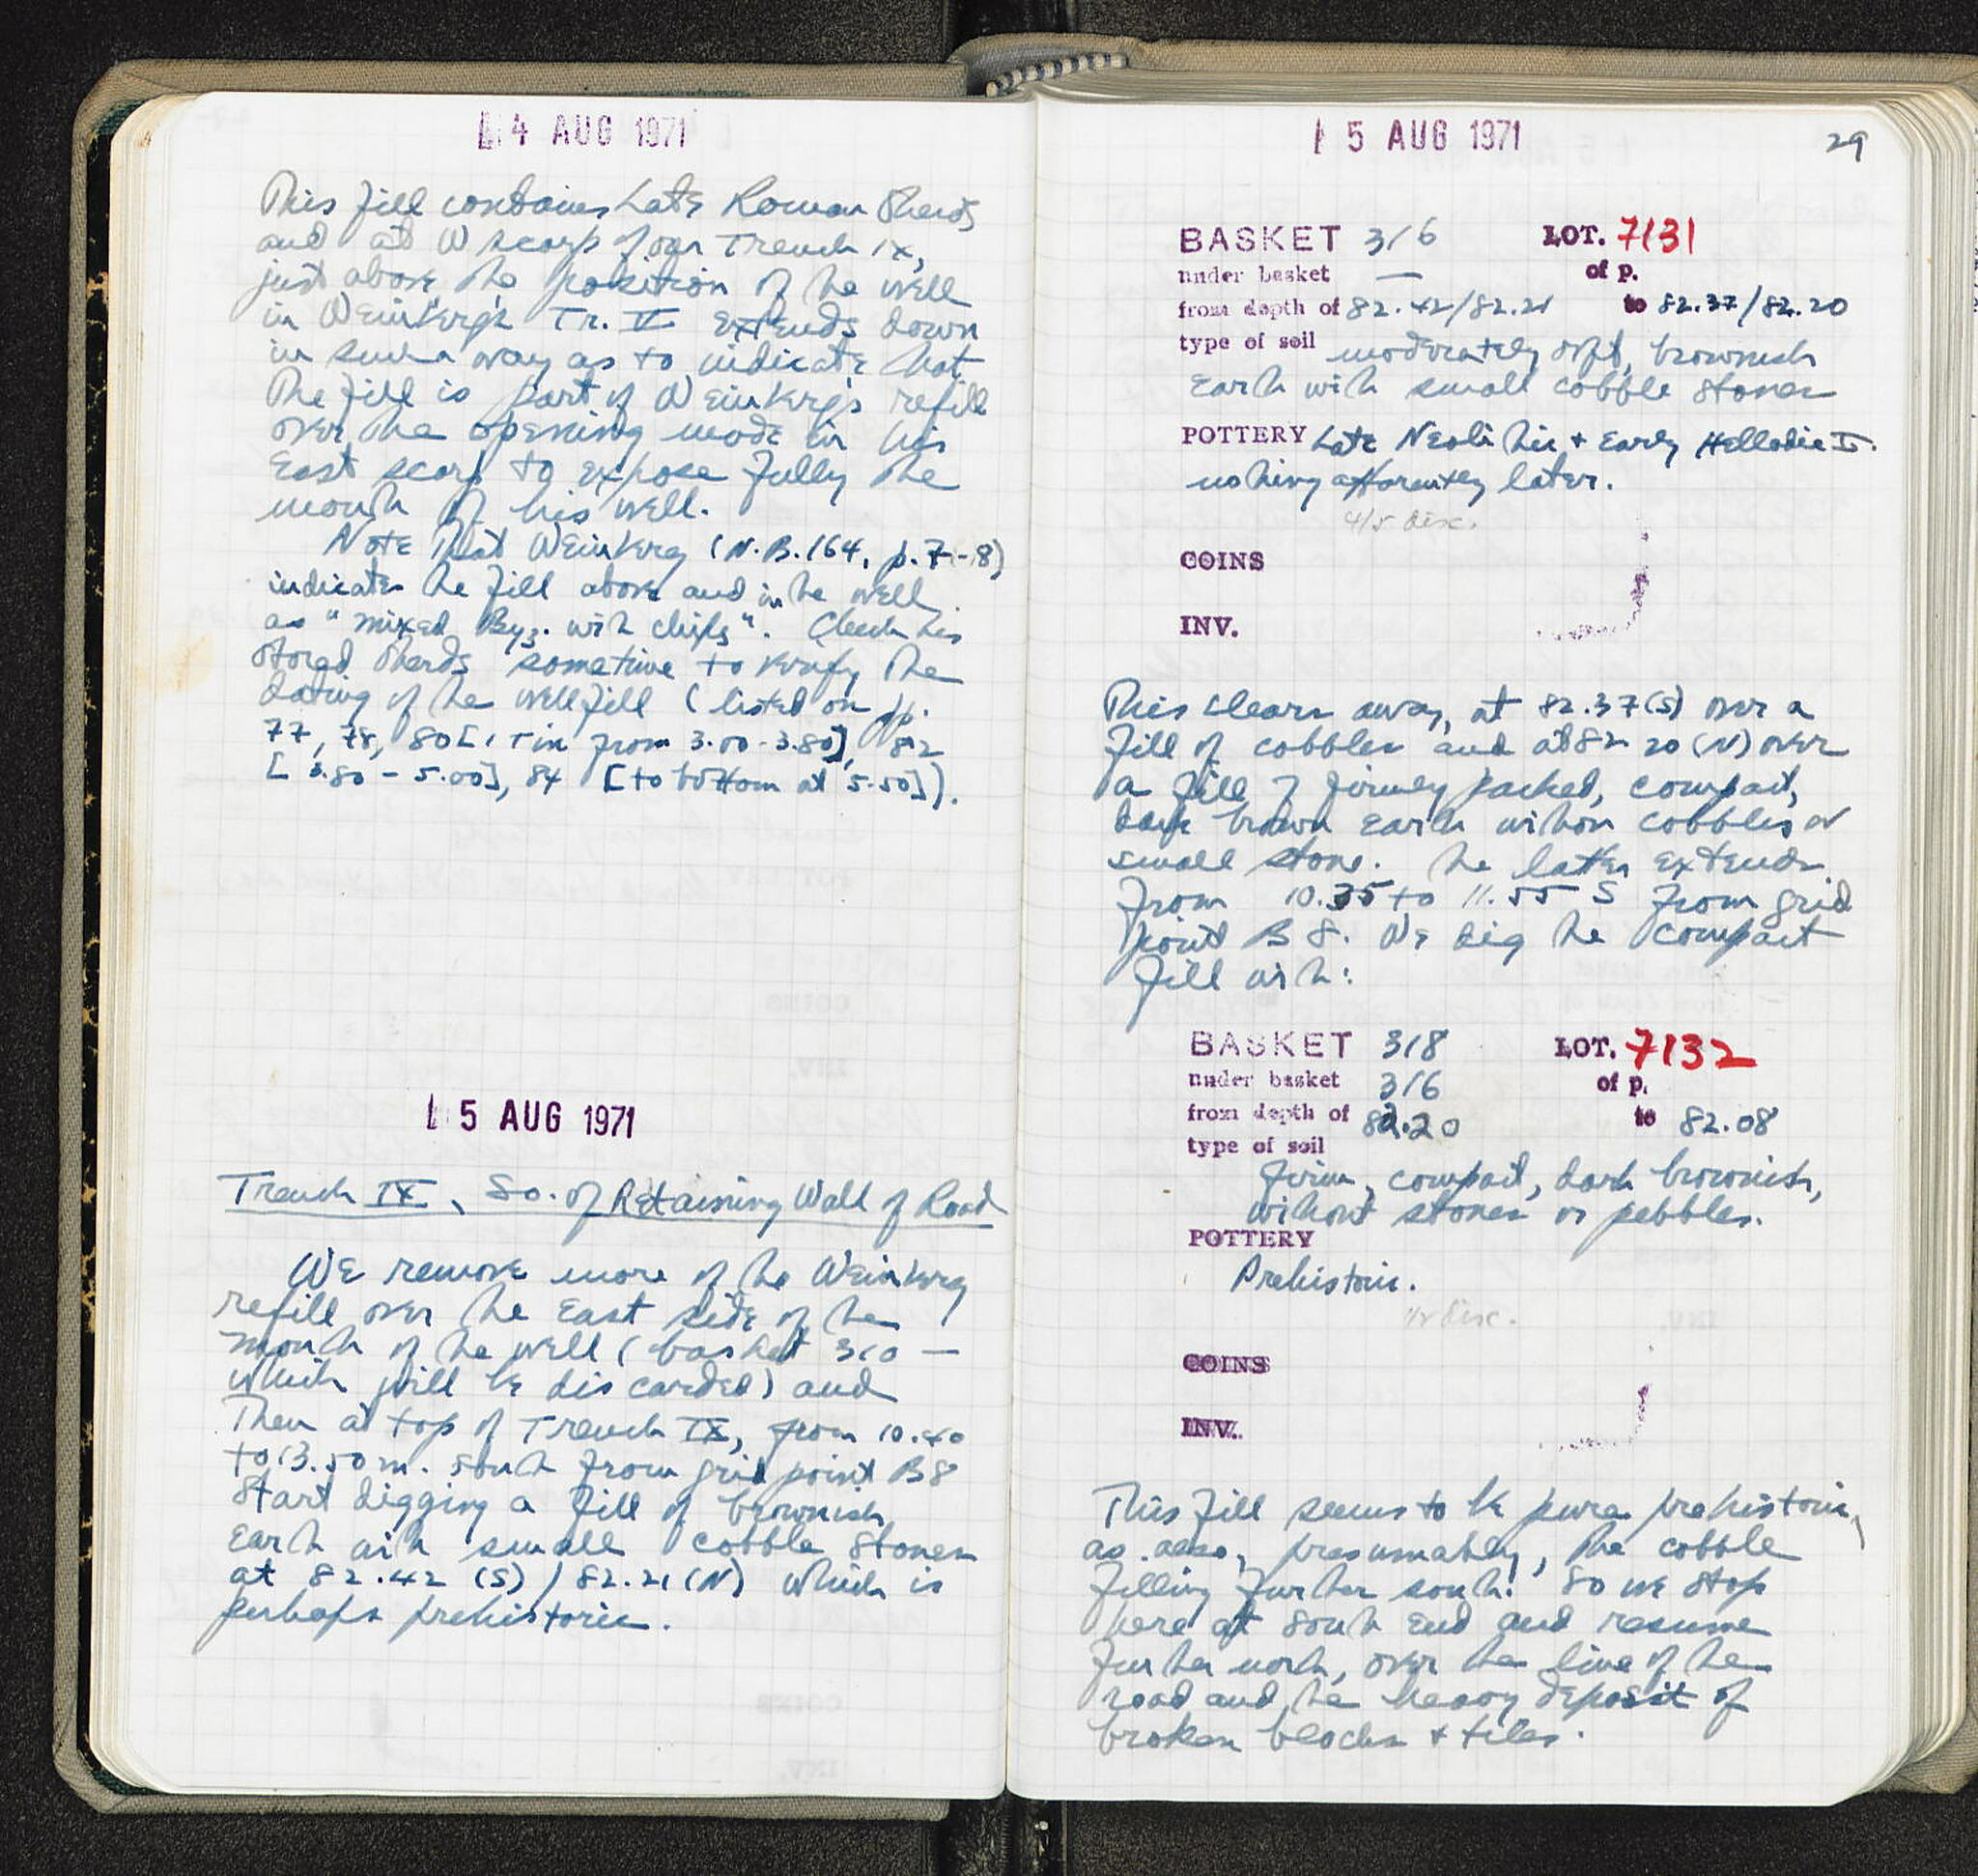 4 AUG 1971
This fill contains Late Roman sherds
and at W scarp of our Trench IX,
just above the position of the well
in Weinberg's Tr. II extends down
in such a way as to indicate that
the fill is part of Weinberg's refill
over the opening made in his
East scarp to expose fully the
mouth of his well.
Note that Weinberg (N.B. 164, p. 7-8)
indicates the fill above and in the well
as "mixed Byz. with chips". Check his
stored sherds sometime to verify the
dating of the well fill (listed on pp.
77, 78, 80 [ from 3.00-3.80], 82
[3.80 - 5.00], 84 [to bottom at 5.50]).
5 AUG 1971
Trench IX, So. of Retaining Wall of Road
We remove more of the Weinberg
refill over the East side of the
mouth of the well (basket 310 —
which will be discarded) and
then at top of Trench IX, from 10.40
to 13.50 m. south from grid point B8
start digging a fill of brownish
earth with small cobble stones
at 82.42 (S) / 82.21 (N) which is
perhaps prehistoric.
5 AUG 1971
29
BASKET 316 LOT. 7131
under basket — of p.
from depth of 82.42/82.21 to 82.37/82.20
type of soil moderately soft, brownish
earth with small cobble stones
POTTERY Late Neolithic + Early Helladic I.
nothing apparently later.
4/5 disc.
COINS
INV.
This clears away, at 82.37(S) over a
fill of cobbles and at 82.20 (N) over
a fill of firmly packed, compact,
dark brown earth without cobbles or
small stone. The latter extends
from 10.35 to 11.55 S from grid
point B8. We dig the compact
fill with:
BASKET 318 LOT. 7132
under basket 316 of p.
from depth of 82.20 to 82.08
type of soil
firm, compact, dark brownish,
without stones or pebbles.
POTTERY
Prehistoric.
disc.
COINS
INV.
This fill seems to be pure prehistoric,
as also, presumably, the cobble
filling further south. So we stop
here at South End and resume
further north, over the line of the
road and the heavy deposit of
broken blocks + tiles.